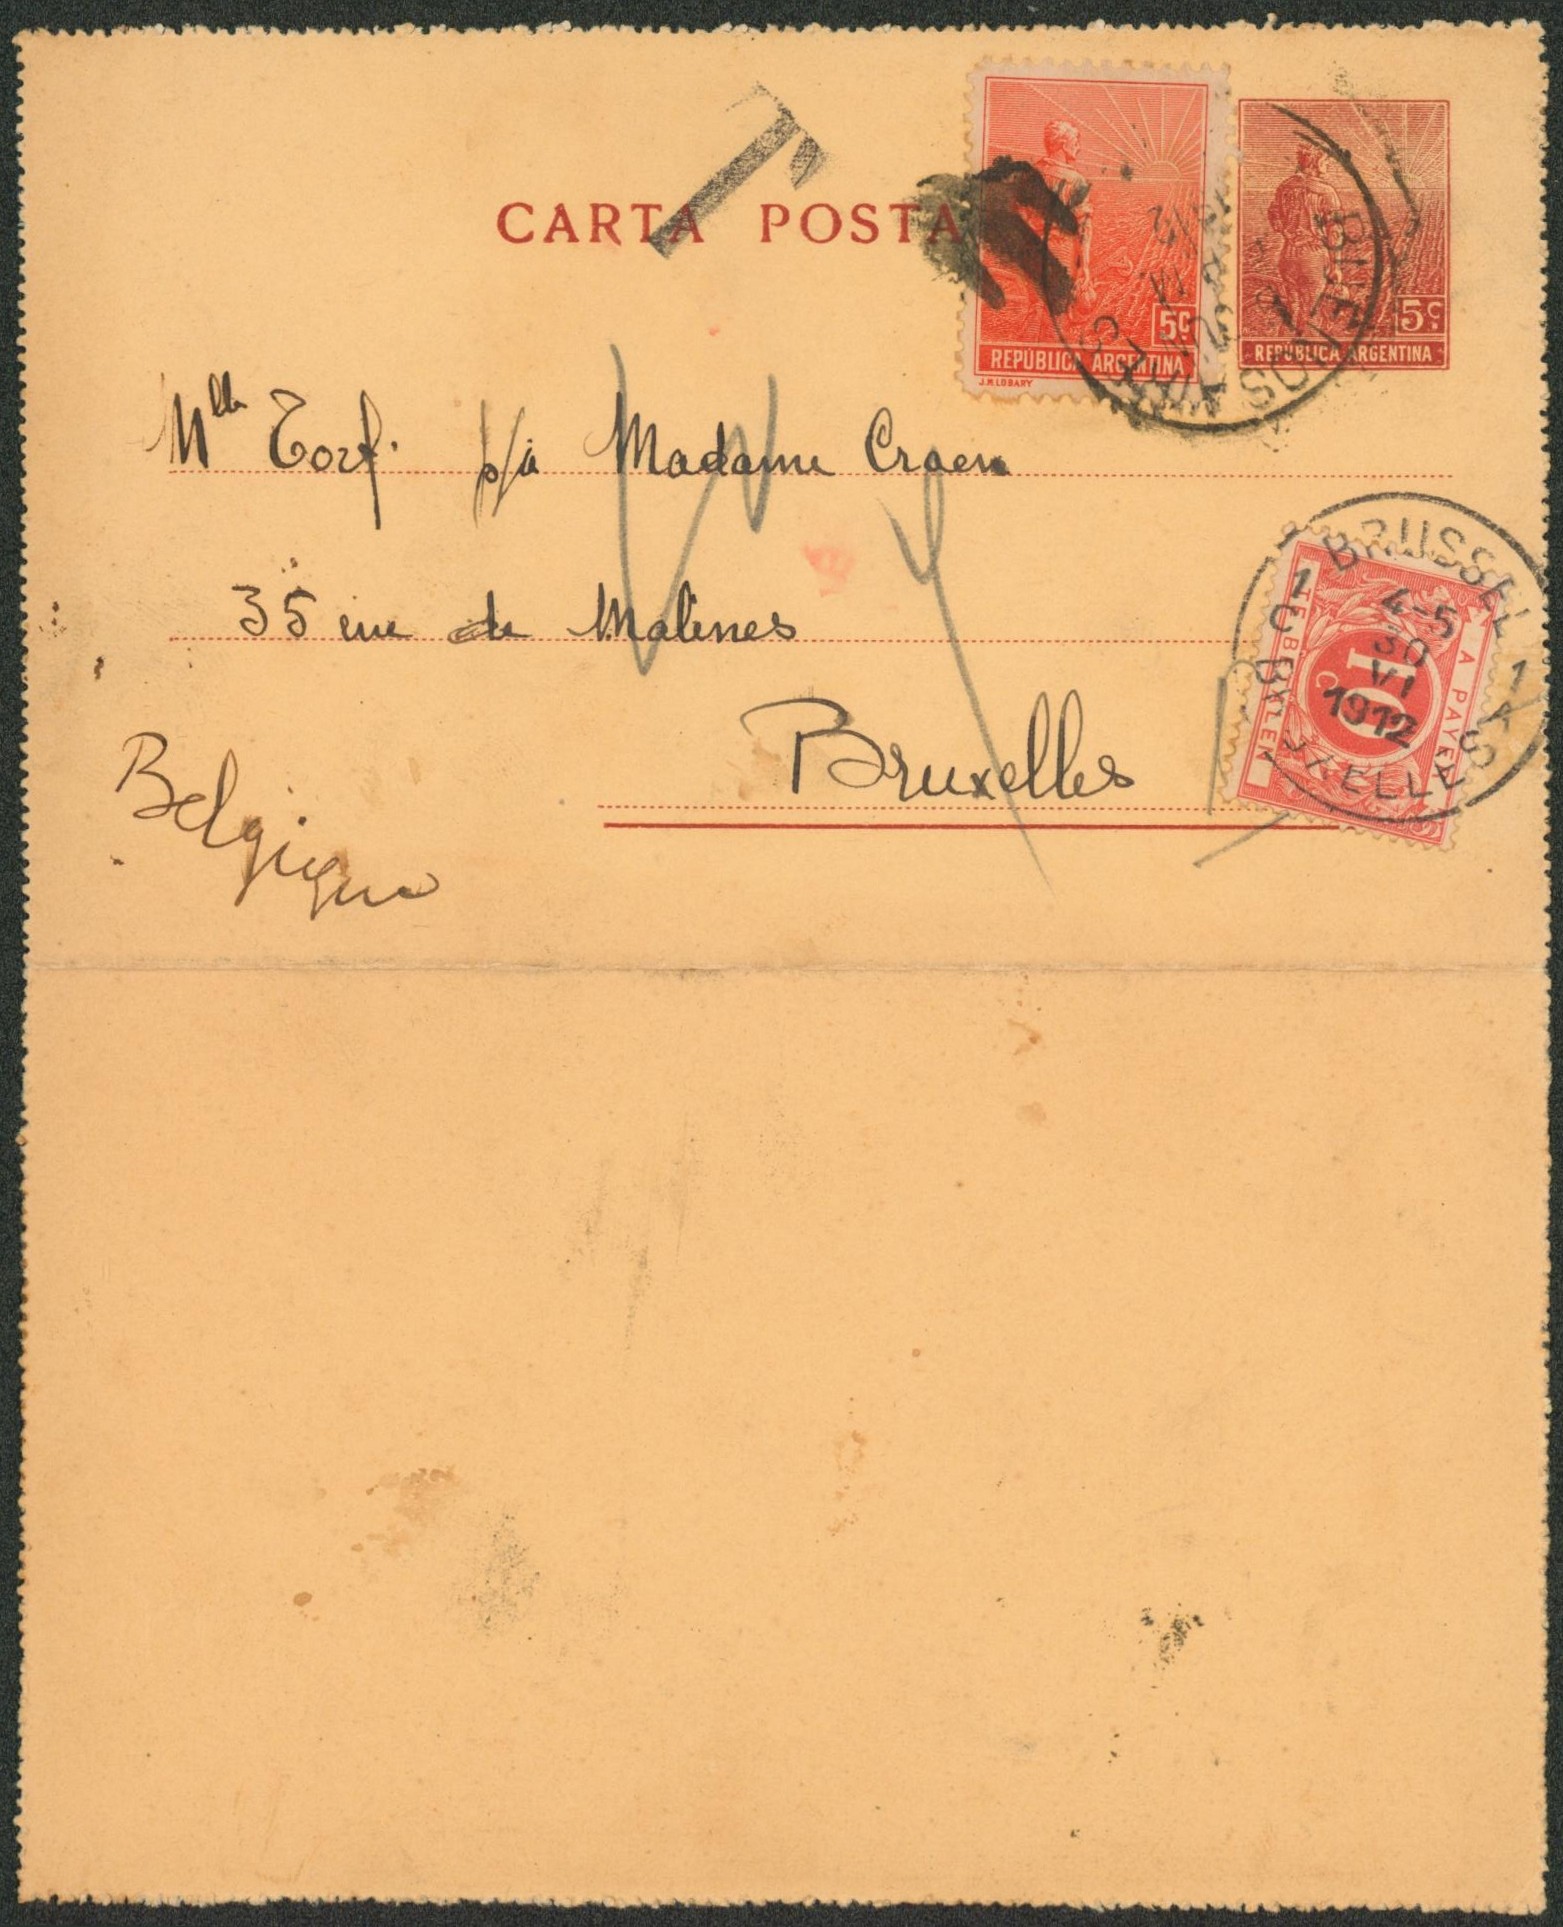 T
CARTA POSTA
5c
REPÚBLICA ARGENTINA
J.M. LOBARY
5c.
REPÚBLICA ARGENTINA
BUENOS AIRES
Mlle Torf. p/a Madame Craen
35 rue de Malines
Bruxelles
Belgique
BRUSSEL
1C 1A
4-5
30
VI
1912
BRUXELLES
A PAYER
10
C
TE BETALEN